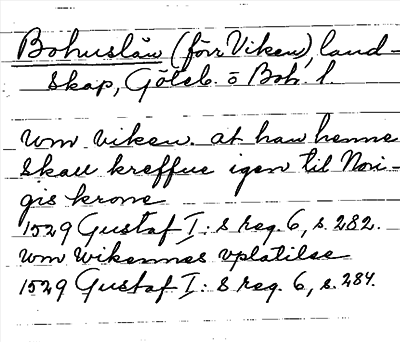 Bohuslän (förr Viken), land-
skap, Göteb. o Boh. l.
wm viken. at han henne
skall kreffue igen til Nori-
gis krone
1529 Gustaf I:s reg. 6, s. 282.
wm wikennes vplatilse
1529 Gustaf I:s reg. 6, s. 284.